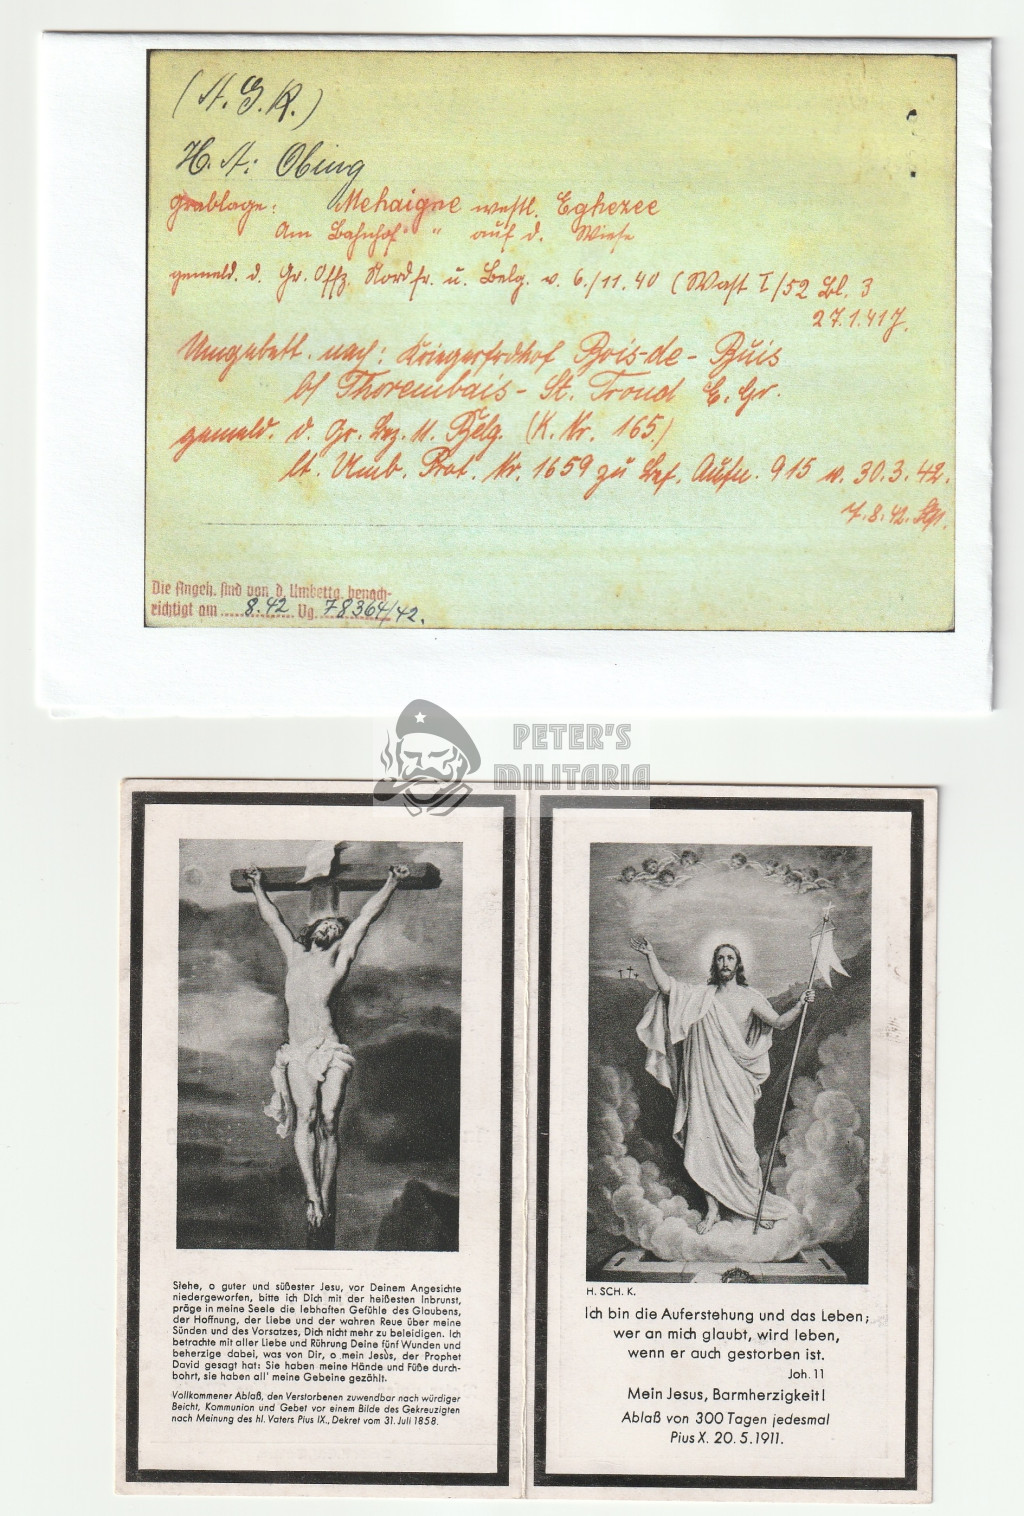 (A. G. K.)
H. A: Obing
Grablage: Mehaigne westl. Eghezee
Am Bahnhof " auf d. Wiese
gemeld. d. Gr. Offz. Nordfr. u. Belg. v. 6./11.40 (Wast I/52 Bl. 3
27.1.41 J.
Umgebett. nach: Kriegerfrdhof Bois-de-Buis
bf Thorembais-St. Trond E. Gr.
gemeld. d. Gr. Lez. U. Belg. (K. Nr. 165.)
lt. Umb. Prot. Nr. 1659 zu Lef. Aufn. 915 v. 30.3.42.
7.8.42.
Die Angeh. sind von d. Umbettg. benach-
richtigt am ........8.42 Vg. 78364/42.
PETER'S
MILITARIA
Siehe, o guter und süßester Jesu, vor Deinem Angesichte
niedergeworfen, bitte ich Dich mit der heißesten Inbrunst,
präge in meine Seele die lebhaften Gefühle des Glaubens,
der Hoffnung, der Liebe und der wahren Reue über meine
Sünden und des Vorsatzes, Dich nicht mehr zu beleidigen. Ich
betrachte mit aller Liebe und Rührung Deine fünf Wunden und
beherzige dabei, was von Dir, o mein Jesus, der Prophet
David gesagt hat: Sie haben meine Hände und Füße durch-
bohrt, sie haben all' meine Gebeine gezählt.
Vollkommener Ablaß, den Verstorbenen zuwendbar nach würdiger
Beicht, Kommunion und Gebet vor einem Bilde des Gekreuzigten
nach Meinung des hl. Vaters Pius IX., Dekret vom 31. Juli 1858.
H. SCH. K.
Ich bin die Auferstehung und das Leben;
wer an mich glaubt, wird leben,
wenn er auch gestorben ist.
Joh. 11
Mein Jesus, Barmherzigkeit!
Ablaß von 300 Tagen jedesmal
Pius X. 20.5.1911.